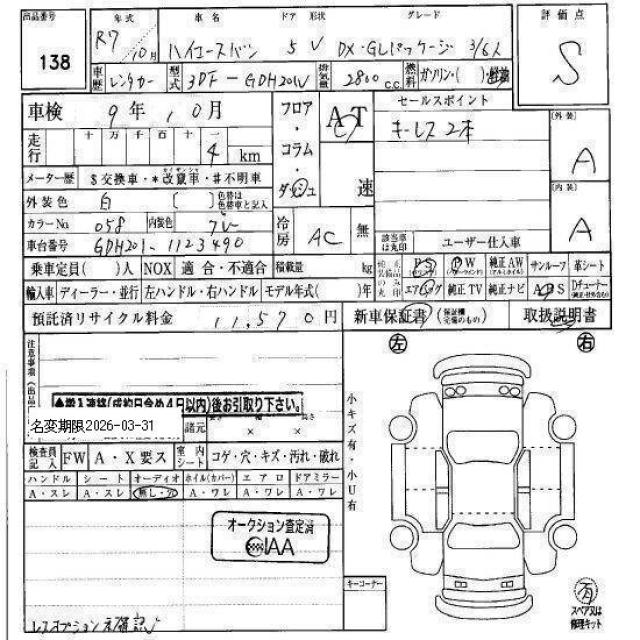 出品番号 年式 車名 ドア 形状 グレード 評価点
138 R7 10月 ハイエースバン 5 V DX・GLパッケージ 3/6人 S
車歴 レンタカー 型式 3DF-GDH201V 排気量 2800 c.c. 燃料 ガソリン・( )・軽油
車検 9年 10月 フロア・コラム・ダッシュ AT 速 セールスポイント
キーレス2本
走行 十 万 千 百 十 一
4 km
[外装] A
メーター歴 $交換車・*改竄車・#不明車
カイザンシャ
[内装] A
外装色 白 [ ] 色替は色替車と記入
カラーNo. 058 内装色 グレー 冷房 AC 無
車台番号 GDH201-1123490 該当車は丸印 ユーザー仕入車
乗車定員( )人 NOX 適合・不適合 積載量 kg 純正装備品のみ丸印 PS PW 純正AW サンルーフ 革シート
輸入車 ディーラー・並行 左ハンドル・右ハンドル モデル年式( )年 エアバッグ 純正TV 純正ナビ ABS Dチューナー
預託済リサイクル料金 11,570円 新車保証書 (保証欄完備のもの) 取扱説明書
注意事項 左 右
▲搬入連絡(成約日含め4日以内)後お引取り下さい。
名変期限2026-03-31 諸元 × ×
小キズ有・小U有
検査員記入 FW A・X要ス 室内シート コゲ・穴・キズ・汚れ・破れ
ハンドル シート オーディオ ホイル(カバー) エアロ ドアミラー
A・スレ A・スレ 無し・穴 A・ワレ A・ワレ A・ワレ
オークション査定済
JAA
キーコーナー
有
スペア又は修理キット
レスオプション未確認